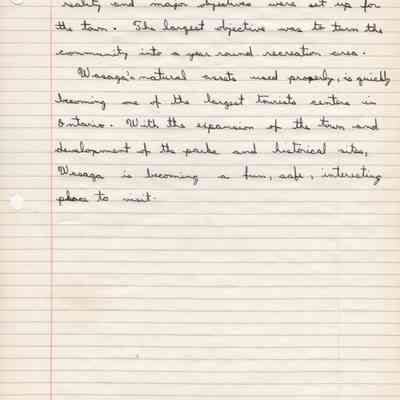 reality and major objectives were set up for
the town. The largest objective was to turn the
community into a year round recreation area.
Wasaga's natural assets used properly, is quickly
becoming one of the largest tourists centers in
Ontario. With the expansion of the town and
development of the parks and historical sites,
Wasaga is becoming a fun, safe, interesting
place to visit.